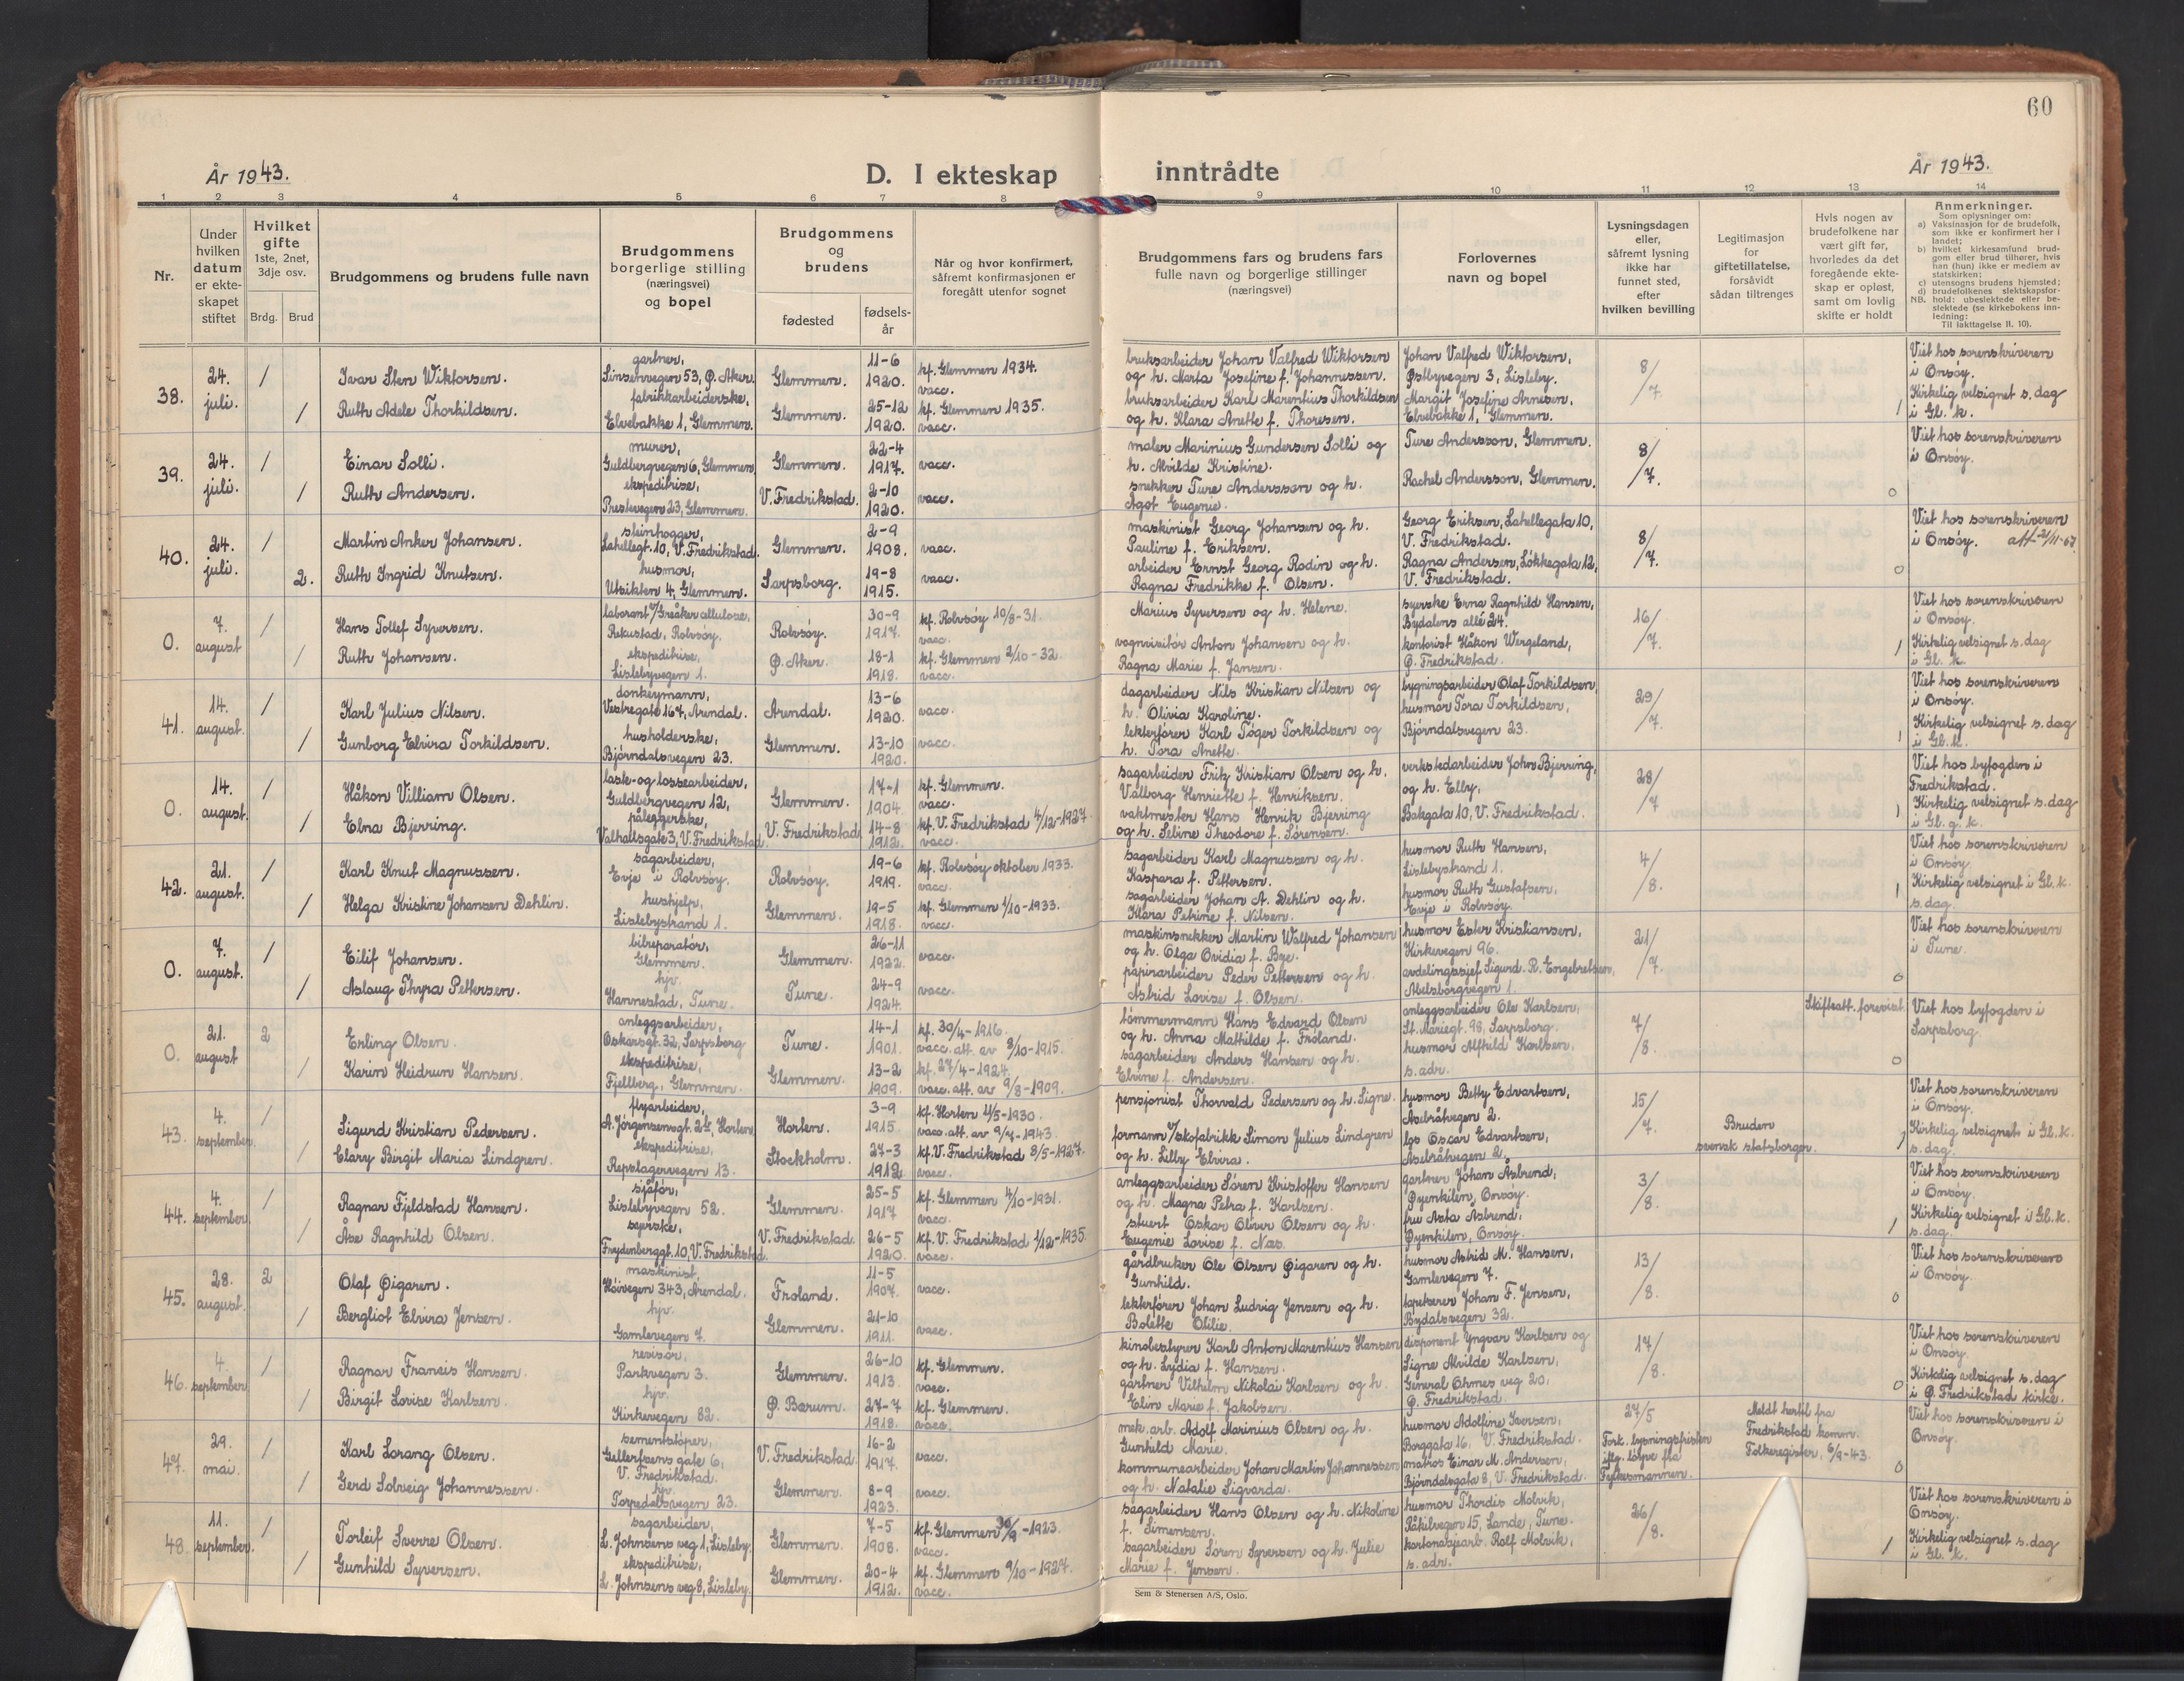 60
År 1943.
D. I ekteskap inntrådte
År 1943.
1 2 3 4 5 6 7 8 9 10 11 12 13 14
Nr.
Under
hvilken
datum
er ekte-
skapet
stiftet
Hvilket
gifte
1ste, 2net,
3dje osv.
Brdg. Brud
Brudgommens og brudens fulle navn
Brudgommens
borgerlige stilling
(næringsvei)
og bopel
Brudgommens
og
brudens
fødested
fødsels-
år
Når og hvor konfirmert,
såfremt konfirmasjonen er
foregått utenfor sognet
Brudgommens fars og brudens fars
fulle navn og borgerlige stillinger
(næringsvei)
Forlovernes
navn og bopel
Lysningsdagen
eller,
såfremt lysning
ikke har
funnet sted,
efter
hvilken bevilling
Legitimasjon
for
giftetillatelse,
forsåvidt
sådan tiltrenges
Hvis nogen av
brudefolkene har
vært gift før,
hvorledes da det
foregående ekte-
skap er opløst,
samt om lovlig
skifte er holdt
Anmerkninger.
Som oplysninger om:
a) Vaksinasjon for de brudefolk,
som ikke er konfirmert her i
landet;
b) hvilket kirkesamfund brud-
gom eller brud tilhører, hvis
han (hun) ikke er medlem av
statskirken;
c) utensogns brudens hjemsted;
d) brudefolkenes slektskapsfor-
NB. hold: ubeslektede eller be-
slektede (se kirkebokens inn-
ledning:
Til iakttagelse II. 10).
38.
24.
juli.
1
1
Ivar Sten Wiktorsen.
Ruth Adele Thorkildsen.
gartner,
Sinsenvegen 53, Ø. Aker.
fabrikkarbeiderske,
Elvebakke 1, Glemmen.
Glemmen.
Glemmen.
11-6
1920.
25-12
1920.
kf. Glemmen 1934.
vacc.
kf. Glemmen 1935.
vacc.
bruksarbeider Johan Valfred Wiktorsen
og h. Marta Josefine f. Johannessen.
bruksarbeider Karl Marentius Thorkildsen
og h. Klara Anette f. Thoresen.
Johan Valfred Wiktorsen,
Østbyvegen 3, Lisleby.
Margit Josefine Arnesen,
Elvebakke 1, Glemmen.
8/7.
1
Viet hos sorenskriveren
i Onsøy.
Kirkelig velsignet s. dag
i Gl. k.
39.
24.
juli.
1
1
Einar Solli.
Ruth Andersen.
murer,
Guldbergvegen 6, Glemmen
ekspeditrise,
Prestevegen 23, Glemmen.
Glemmen.
V. Fredrikstad.
22-4
1917.
2-10
1920.
vacc.
vacc.
maler Marinius Gundersen Solli og
h. Alvilde Kristine.
snekker Ture Andersson og h.
Agot Eugenie.
Ture Andersson, Glemmen.
Rachel Andersson, Glemmen.
8/7.
0
Viet hos sorenskriveren
i Onsøy.
40.
24.
juli.
1
2.
Martin Anker Johansen.
Ruth Ingrid Knutsen.
steinhogger,
Lahellegt. 10, V. Fredrikstad.
husmor,
Utsikten 4, Glemmen.
Glemmen.
Sarpsborg.
2-9
1908.
19-8
1915.
vacc.
vacc.
maskinist Georg Johansen og h.
Pauline f. Eriksen.
arbeider Ernst Georg Rodin og h.
Ragna Fredrikke f. Olsen.
Georg Eriksen, Lahellegata 10,
V. Fredrikstad.
Ragna Andersen, Løkkegata 12,
V. Fredrikstad.
8/7.
0
Viet hos sorenskriveren
i Onsøy.
0.
7.
august
1
1
Hans Tollef Syversen.
Ruth Johansen.
laborant v/ Greåker cellulose,
Rekustad, Rolvsøy.
ekspeditrise,
Lislebyvegen 1.
Rolvsøy.
Ø. Aker.
30-9
1917.
18-1
1918.
kf. Rolvsøy 10/8-31.
vacc.
kf. Glemmen 2/10-32.
vacc.
Marius Syversen og h. Helene.
vognvisitør Anton Johansen og h.
Ragna Marie f. Jansen.
syerske Erna Ragnhild Hansen,
Bydalens allé 24.
kontorist Håkon Wergeland,
Ø. Fredrikstad.
16/7.
1
Viet hos sorenskriveren
i Onsøy.
Kirkelig velsignet s. dag
i Gl. k.
41.
14.
august.
1
1
Karl Julius Nilsen.
Gunborg Elvira Torkildsen.
donkeymann,
Vestregate 167, Arendal.
husholderske,
Bjørndalsvegen 23.
Arendal.
Glemmen.
13-6
1920.
13-10
1920.
vacc.
vacc.
dagarbeider Nils Kristian Nilsen og
h. Olivia Karoline.
lekterfører Karl Tøger Torkildsen og
h. Tora Anette.
bygningsarbeider Olaf Torkildsen,
husmor Tora Torkildsen,
Bjørndalsvegen 23.
29/7.
1
Viet hos sorenskriveren
i Onsøy.
Kirkelig velsignet s. dag
i Gl. k.
0.
14.
august.
1
1
Håkon Villiam Olsen.
Elna Bjerring.
laste- og lossearbeider,
Guldbergvegen 12,
påleggerske,
Valhallsgate 3, V. Fredrikstad.
Glemmen.
V. Fredrikstad
17-1
1904
14-8
1912.
kf. Glemmen.
vacc.
kf. V. Fredrikstad 4/12-1927
vacc.
sagarbeider Fritz Kristian Olsen og h.
Valborg Henriette f. Henriksen.
vaktmester Hans Henrik Bjerring
og h. Seline Theodore f. Sørensen.
verkstedarbeider John Bjerring,
og h. Elly,
Bakgata 10, V. Fredrikstad.
28/7
1
Viet hos byfogden i
Fredrikstad.
Kirkelig velsignet s. dag
i Gl. g. k.
42.
21.
august.
1
1
Karl Knut Magnussen.
Helga Kristine Johansen Dehlin.
sagarbeider,
Evje i Rolvsøy.
hushjelp,
Lislebystrand 1.
Rolvsøy.
Glemmen.
19-6
1919.
19-5
1918.
kf. Rolvsøy oktober 1933.
vacc.
kf. Glemmen 1/10-1933.
vacc.
sagarbeider Karl Magnussen og h.
Kaspara f. Pettersen.
sagarbeider Johan A. Dehlin og h.
Klara Petrine f. Nilsen.
husmor Ruth Hansen,
Lislebystrand 1.
husmor Ruth Gustafsen,
Evje i Rolvsøy.
4/8.
1
Viet hos sorenskriveren
i Onsøy.
Kirkelig velsignet i Gl. k.
s. dag.
0.
7.
august.
1
1
Eilif Johansen.
Aslaug Thyra Pettersen.
bilreparatør,
Glemmen.
hjv.
Hannestad, Tune.
Glemmen.
Tune.
26-11
1922.
24-9
1924.
vacc.
vacc.
maskinsnekker Martin Walfred Johansen
og h. Olga Ovidia f. Bye.
papirarbeider Peder Pettersen og h.
Astrid Lovise f. Olsen.
husmor Ester Kristiansen,
Kirkevegen 96.
avdelingssjef Sigurd R. Engebretsen,
Abelsborgvegen 1.
21/7.
0
Viet hos sorenskriveren
i Tune.
0.
21.
august
2
1
Erling Olsen.
Karin Heidrun Hansen.
anleggsarbeider,
Oskarsgt. 32, Sarpsborg
ekspeditrise,
Fjellberg, Glemmen.
Tune.
Glemmen.
14-1
1901.
13-2
1909.
kf. 30/4-1916.
vacc. att. av 8/10-1915.
kf. 27/4-1924.
vacc. att. av 9/8-1909.
tømmermann Hans Edvard Olsen
og h. Anna Mathilde f. Frøland.
sagarbeider Anders Hansen og h.
Elvine f. Andersen.
anleggsarbeider Ole Karlsen,
St. Mariegt. 98, Sarpsborg.
husmor Alfhild Karlsen,
s. adr.
7/8.
Skifteatt. forevist.
0
Viet hos byfogden i
Sarpsborg.
43.
4.
september.
1
1
Sigurd Kristian Pedersen.
Clary Birgit Maria Lindgren.
flyarbeider,
A. Jørgensensgt. 2, Horten
ekspeditrise,
Repslagervegen 13.
Horten.
Stockholm.
3-9
1915.
27-3
1912
kf. Horten 4/5-1930.
vacc. att. av 9/7-1943.
kf. V. Fredrikstad 8/5-1927.
vacc.
pensjonist Thorvald Pedersen og h. Signe.
formann v/ skofabrikk Simon Julius Lindgren
og h. Lilly Elvira.
husmor Betty Edvartsen,
Aasebråtvegen 2.
Oscar Edvartsen,
15/7.
Bruden
svensk statsborger.
1
Viet hos sorenskriveren
i Onsøy.
Kirkelig velsignet i Gl. k.
s. dag.
44.
4.
september.
1
1
Ragnar Fjeldstad Hansen.
Åse Ragnhild Olsen.
sjåfør,
Lislebyvegen 52.
syerske,
Frydenberggt. 10, V. Fredrikstad.
Glemmen.
V. Fredrikstad.
25-5
1917
26-5
1920.
kf. Glemmen 4/10-1931.
vacc.
kf. V. Fredrikstad 1/12-1935.
vacc.
anleggsarbeider Søren Kristoffer Hansen
og h. Magna Petra f. Karlsen.
stuert Oskar Oliver Olsen og h.
Eugenie Lovise f. Næs.
gartner Johan Åsbrend,
Øyenkilen, Onsøy.
fru Asta Åsbrend,
Øyenkilen, Onsøy.
3/8.
1
Viet hos sorenskriveren
i Onsøy.
Kirkelig velsignet i Gl. k.
s. dag.
45.
28.
august.
2
1
Olaf Øigaren.
Bergliot Elvira Jensen.
maskinist,
Høivegen 343, Arendal.
hjv.
Gamlevegen 7.
Froland.
Glemmen.
11-5
1907.
21-10
1911.
vacc.
vacc.
gårdbruker Ole Olsen Øigaren og h.
Gunhild.
lekterfører Johan Ludvig Jensen og h.
Bolette Otilie.
husmor Astrid M. Hansen,
Gamlevegen 7.
tapetserer Johan F. Jensen,
Bydalsvegen 32.
13/8.
0
Viet hos sorenskriveren
i Onsøy.
46.
4.
september
1
1
Ragnar Francis Hansen.
Birgit Lovise Karlsen.
revisor,
Parkvegen 3.
hjv.
Kirkevegen 82.
Glemmen.
Ø. Bærum.
26-10
1913.
27-7
1918.
kf. Glemmen.
vacc.
kf. Glemmen.
vacc.
kinobestyrer Karl Anton Marentius Hansen
og h. Lydia f. Hansen.
gartner Vilhelm Nikolai Karlsen og h.
Elin Marie f. Jakobsen.
disponent Yngvar Karlsen og
Signe Alvilde Karlsen,
General Ohmes veg 20,
Ø. Fredrikstad.
17/8.
0
Viet hos sorenskriveren
i Onsøy.
Kirkelig velsignet s. dag
i Ø. Fredrikstad kirke.
47.
29.
mai.
1
1
Karl Lorang Olsen.
Gerd Solveig Johannessen.
sementstøper,
gate 6,
V. Fredrikstad.
hjv.
Torpedalsvegen 23.
V. Fredrikstad
Glemmen.
16-2
1917.
8-9
1923.
vacc.
vacc.
mek. arb. Adolf Marinius Olsen og h.
Gunhild Marie.
kommunearbeider Johan Martin Johannessen
og h. Natalie Sigvarda.
husmor Adolfine Iversen,
Borggata 16, V. Fredrikstad.
matros Einar M. Andersen,
Bjørndalsgata 8, V. Fredrikstad.
27/5
Fork. lysningsfristen
iflg. løyve fra
Fylkesmannen.
Meldt hertil fra
Fredrikstad komm.
Folkeregister, 6/9-43.
0
Viet hos sorenskriveren i
Onsøy.
48.
11.
september.
1
1
Torleif Sverre Olsen.
Gunhild Syversen.
sagarbeider,
L. Johnsens veg 1, Lisleby.
ekspeditrise,
L. Johnsens veg 8, Lisleby.
Glemmen.
Glemmen.
7-5
1908.
20-4
1912.
kf. Glemmen 30/9-1923.
vacc.
kf. Glemmen 9/10-1927.
vacc.
sagarbeider Hans Olsen og h. Nikoline
f. Simensen.
sagarbeider Søren Syversen og h. Julie
Marie f. Jensen.
husmor Thordis Molvik,
Råkilvegen 15, Lande, Tune.
kartonasjearb. Rolf Molvik,
s. adr.
26/8.
1
Viet hos sorenskriveren i
Onsøy.
Kirkelig velsignet s. dag
i Gl. k.
Sem & Stenersen A/S, Oslo.